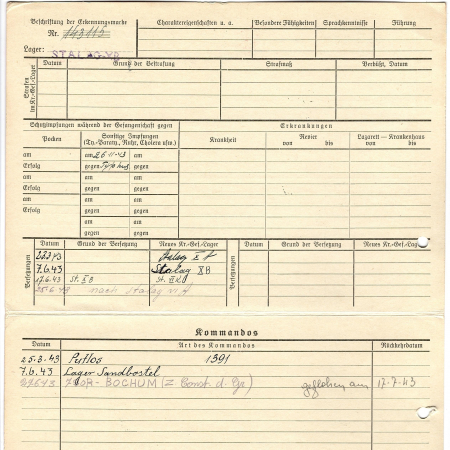 Beschriftung der Erkennungsmarke
Nr.
Lager: STALAG
Charaktereigenschaften u. a.
Besondere Fähigkeiten
Sprachkenntnisse
Führung
Strafen im Kr.-Gef.-Lager
Datum Grund der Bestrafung Strafmaß Verbüßt, Datum
Schutzimpfungen während der Gefangenschaft gegen
Erkrankungen
Pocken
Sonstige Impfungen
(Ty.-Paraty., Ruhr, Cholera usw.)
Krankheit
Revier
von bis
Lazarett – Krankenhaus
von bis
am am 26.11.43 am
Erfolg gegen Typhus gegen
am am am
Erfolg gegen gegen
am am am
Erfolg gegen gegen
am am
gegen gegen
Versetzungen
Datum Grund der Versetzung Neues Kr.-Gef.-Lager
Versetzungen
Datum Grund der Versetzung Neues Kr.-Gef.-Lager
Stalag X A
7.6.43 Stalag XB
17.6.43 St. XB St.
nach Stalag VI A
Kommandos
Datum Art des Kommandos Rückkehrdatum
25.3.43 Putlos 1391
7.6.43 Lager Sandbostel
BOCHUM (Z Const. d. Gr) geflohen am 17.7.43